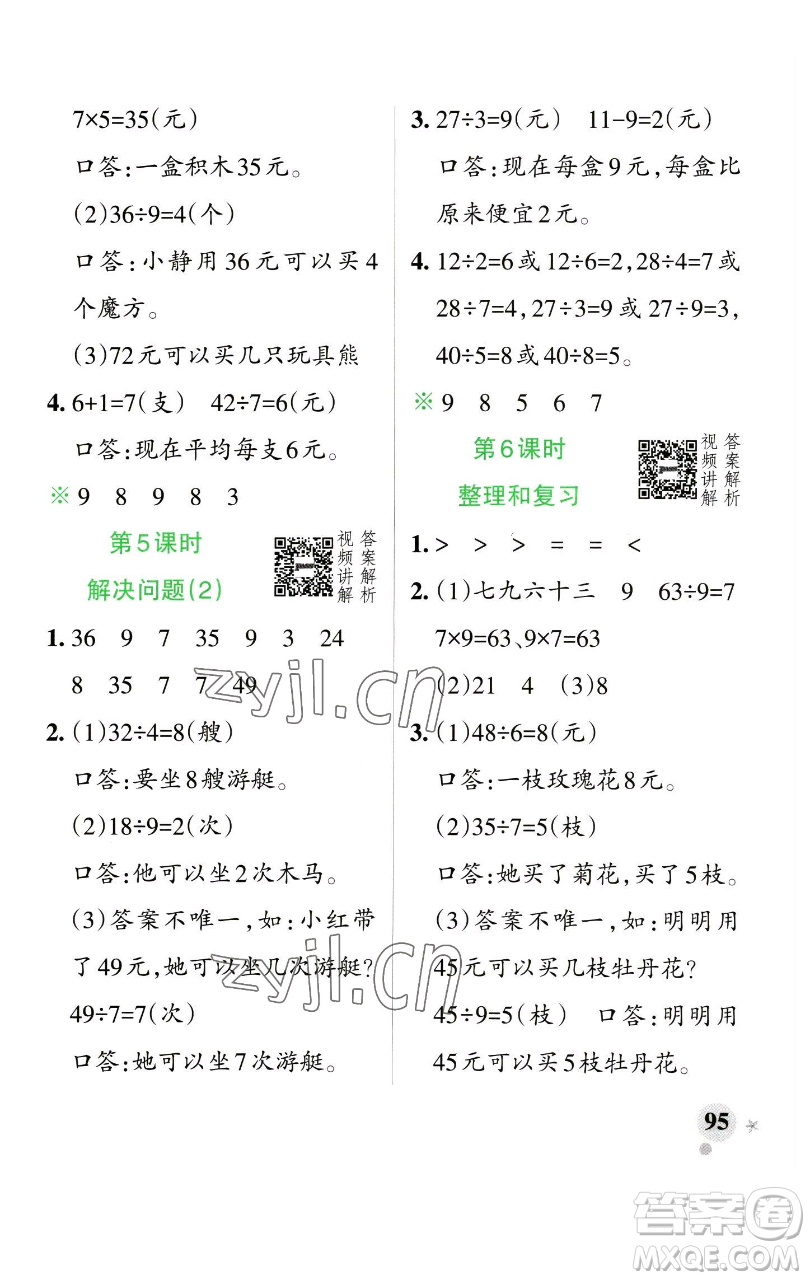 7×5=35(元)
口答:一盒积木35元。
(2)36÷9=4(个)
口答:小静用36元可以买4
个魔方。
(3)72元可以买几只玩具熊
4. 6+1=7(支) 42÷7=6(元)
口答:现在平均每支6元。
※ 9 8 9 8 3
第5课时
解决问题(2)
视频讲解
答案解析
1. 36 9 7 35 9 3 24
8 35 7 7 49
2. (1)32÷4=8(艘)
口答:要坐8艘游艇。
(2)18÷9=2(次)
口答:他可以坐2次木马。
(3)答案不唯一,如:小红带
了49元,她可以坐几次游艇?
49÷7=7(次)
口答:她可以坐7次游艇。
3. 27÷3=9(元) 11-9=2(元)
口答:现在每盒9元,每盒比
原来便宜2元。
4. 12÷2=6或12÷6=2,28÷4=7或
28÷7=4,27÷3=9或27÷9=3,
40÷5=8或40÷8=5。
※ 9 8 5 6 7
第6课时
整理和复习
视频讲解
答案解析
1. > > > = = <
2. (1)七九六十三 9 63÷9=7
7×9=63、9×7=63
(2)21 4 (3)8
3. (1)48÷6=8(元)
口答:一枝玫瑰花8元。
(2)35÷7=5(枝)
口答:她买了菊花,买了5枝。
(3)答案不唯一,如:明明用
45元可以买几枝牡丹花?
45÷9=5(枝) 口答:明明用
45元可以买5枝牡丹花。
95
zyjl.cn
zyjl.cn
答案圈
MXQE.COM